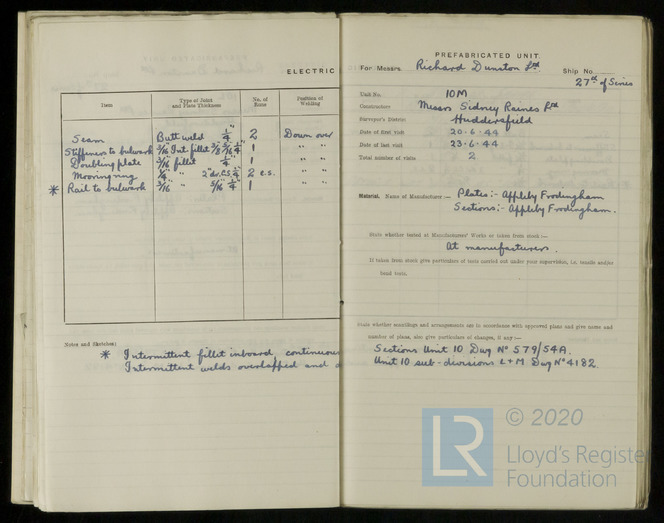 ELECTRIC
Item Type of Joint and Plate Thickness No. of Runs Position of Welding
Seam Butt weld 1/4" 2 Down over
Stiffeners to bulwark 3/16 Int fillet 1 " "
Doubling plate 3/16 " fillet 1/4" 1 " "
Mooring ring 1/4 " 2 e.s. " "
* Rail to bulwark 3/16 " 5/16 1/4 1 " "
Notes and Sketches:
* Intermittent fillet inboard, continuous
Intermittent welds overlapped and
PREFABRICATED UNIT
PREFABRICATED UNIT.
For Messrs. Richard Dunston Ltd Ship No.
27th of Series
Unit No. 10M
Constructor Messrs Sidney Raines Ltd
Surveyor's District Huddersfield
Date of first visit 20-6-44
Date of last visit 23-6-44
Total number of visits 2
Material. Name of Manufacturer:— Plates:- Appleby Frodingham
Sections:- Appleby Frodingham.
State whether tested at Manufacturers' Works or taken from stock:—
At manufacturers.
If taken from stock give particulars of tests carried out under your supervision, i.e. tensile and/or
bend tests.
State whether scantlings and arrangements are in accordance with approved plans and give name and
number of plans, also give particulars of changes, if any:—
Sections Unit 10 Dwg No 579/54A.
Unit 10 sub-divisions L+M Dwg No 4182.
© 2020
LR
Lloyd's Register
Foundation